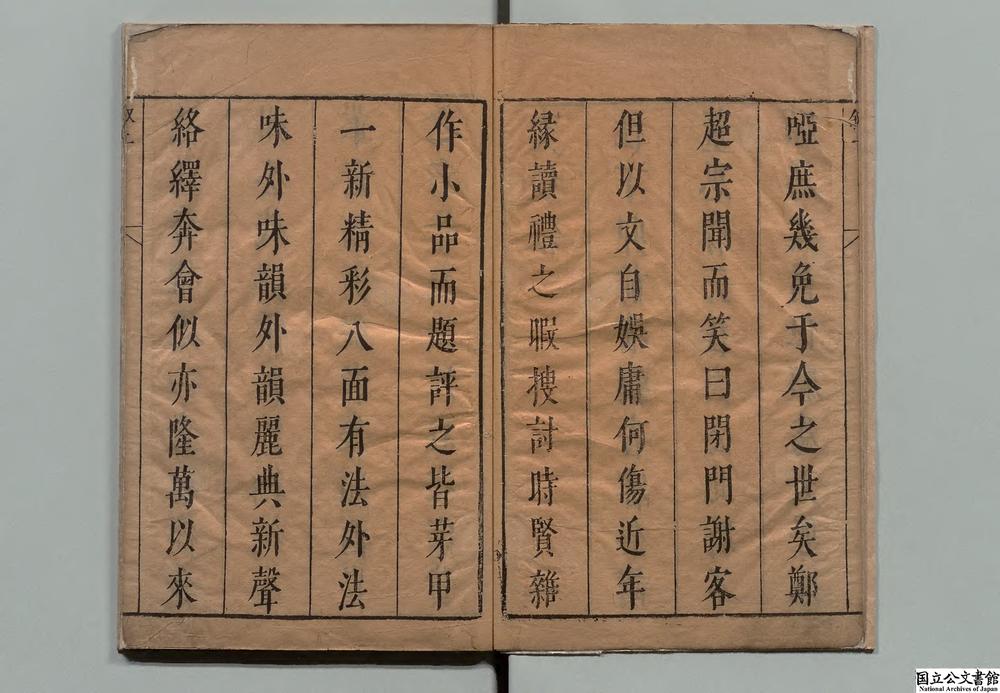 啞庶幾免于今之世矣鄭
超宗聞而笑曰閉門謝客
但以文自娛庸何傷近年
緣讀禮之暇摟討時賢雜
作小品而題評之皆芽甲
一新精彩八面有法外法
味外味韻外韻麗典新聲
絡繹奔會似亦隆萬以來
国立公文書館
National Archives of Japan